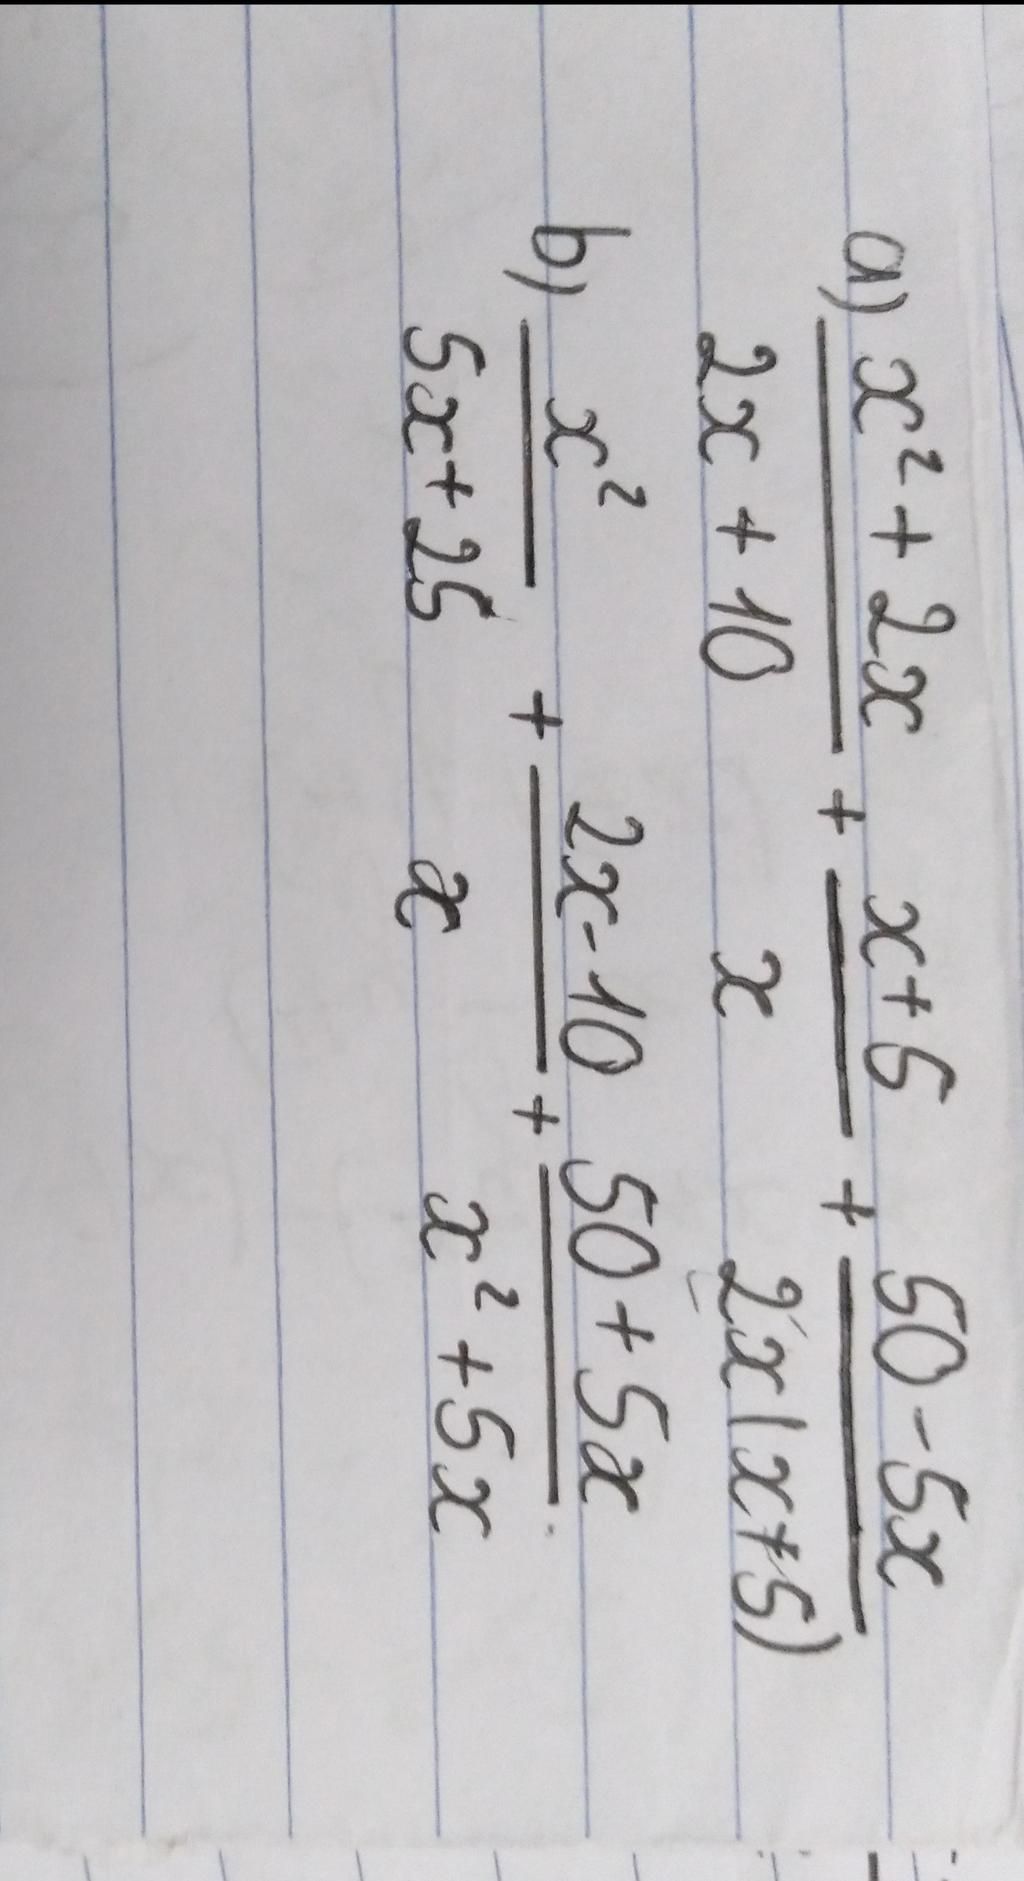 a) x² + 2x / 2x + 10 + x + 5 / x + 50 - 5x / 2x(x+5)
b) x² / 5x + 25 + 2x - 10 / x + 50 + 5x / x² + 5x